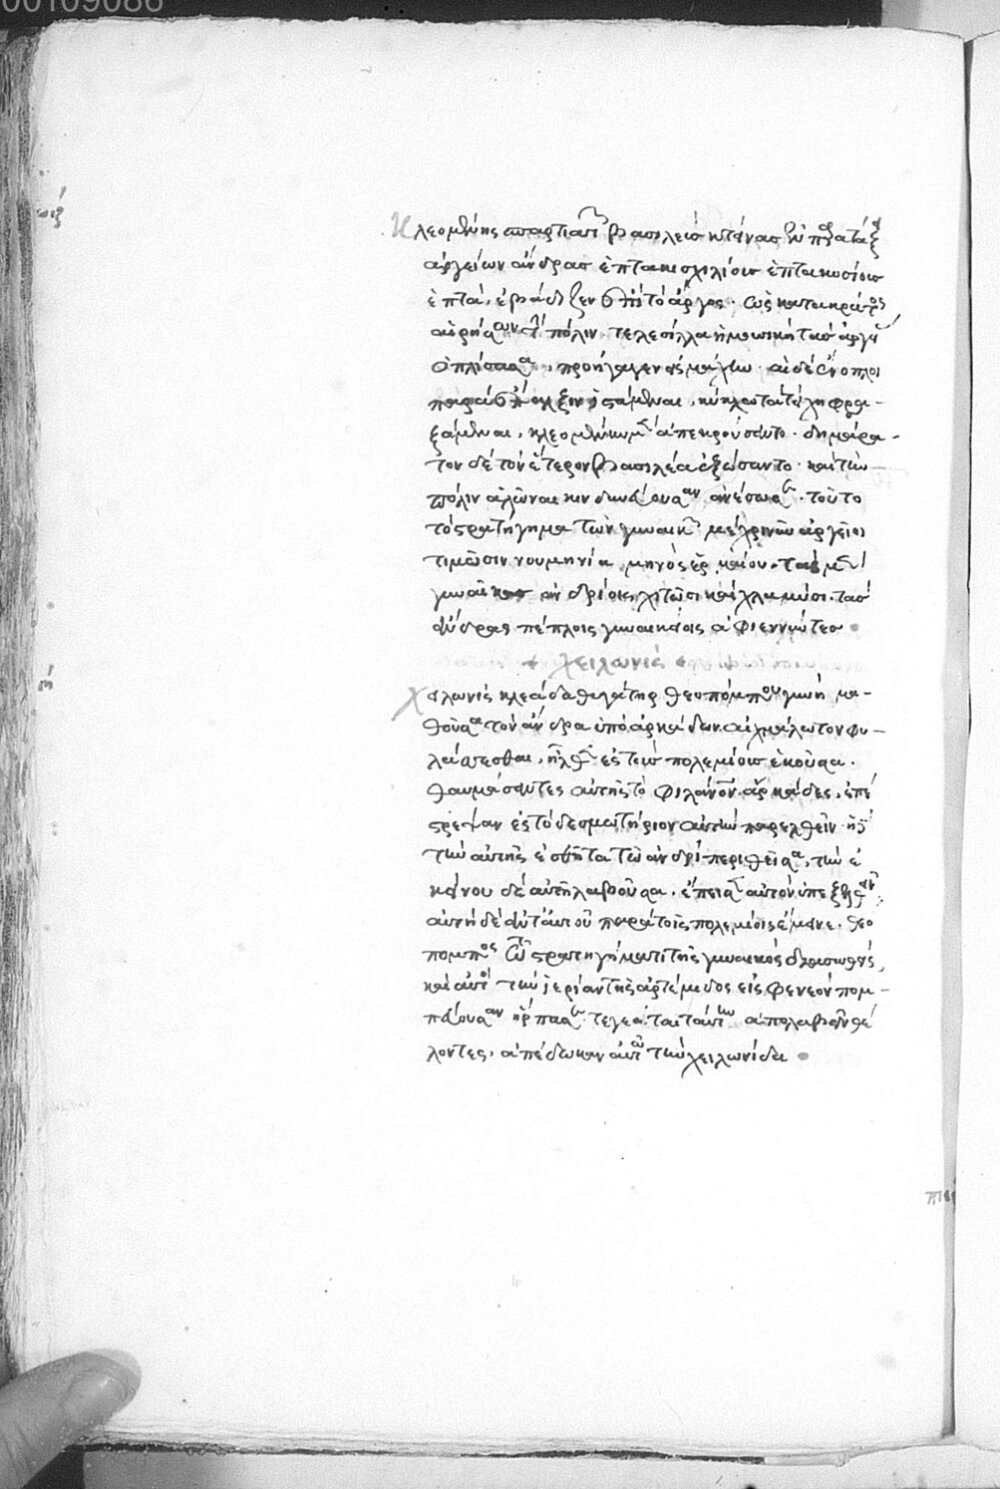 00109088
Κλεομένης σπαρτιατῶν βασιλεὺς κτείνας ἐν παρατάξει
ἀργείων ἄνδρας ἑπτακισχιλίους ἑπτακοσίους
ἑπτὰ, ἐβάδιζεν ἐπὶ τὸ ἄργος. ὡς κατακράτος
αἱρήσων τὴν πόλιν. τελέσιλλα ἡ μουσικὴ τὰς ἀργείας
ὁπλίσασα, προήγαγεν ἐς μάχην. αἱ δὲ ἔνοπλοι
παρὰ ἔπαλξιν στάμεναι, κύκλω τὰ τείχη φρα-
ξάμεναι, κλεομένην μὲν ἀπεκρούσαντο. δημάρα-
τον δὲ τὸν ἕτερον βασιλέα ἐξέωσαντο. καὶ τὴν
πόλιν ἁλῶναι κινδυνεύουσαν ἀνέσωσαν. τοῦτο
τὸ στρατήγημα τῶν γυναικῶν μέχρι νῦν ἀργεῖοι
τιμῶσιν νουμηνία μηνὸς ἑρμαίου. τὰς μὲν
γυναῖκας ἀνδρίοις χιτῶσι καὶ χλαμύσι. τοὺς
ἄνδρας πέπλοις γυναικείοις ἀμφιεννύτες
χειλωνίς
Χειλωνὶς κλεάδα θυγάτηρ θεοπόμπου γυνὴ μα-
θοῦσα τὸν ἄνδρα ὑπὸ ἀρκάδων αἰχμάλωτον φυ-
λάττεσθαι, ἦλθεν ἐς τοὺς πολεμίους ἑκοῦσα.
θαυμάσαντες αὐτῆς τὸ φίλανδρον ἀρκάδες, ἐπέ
στρεψαν ἐς τὸ δεσμωτήριον αὐτὴν παρελθεῖν. ἡ δὲ
τὴν αὐτῆς ἐσθῆτα τῶ ἀνδρὶ περιθεῖσα, τὴν ἐ
κείνου δὲ αὐτὴ λαβοῦσα. ἔπεισεν αὐτὸν ὑπεξελθεῖν
αὐτὴ δὲ ἀντ' αὐτοῦ παρὰ τοῖς πολεμίοις ἔμεινε. θεό
πομπος τῶ στρατηγήματι τῆς γυναικὸς διασωθεὶς,
καὶ αὐτὸς τὴν ἱέρειαν τῆς ἀρτέμιδος εἰς φενεὸν πομ-
πεύουσαν ἥρπασεν. τεγεᾶται ταύτην ἀπολαβεῖν θέ
λοντες, ἀπέδωκαν αὐτῶ τὴν χειλωνίδα